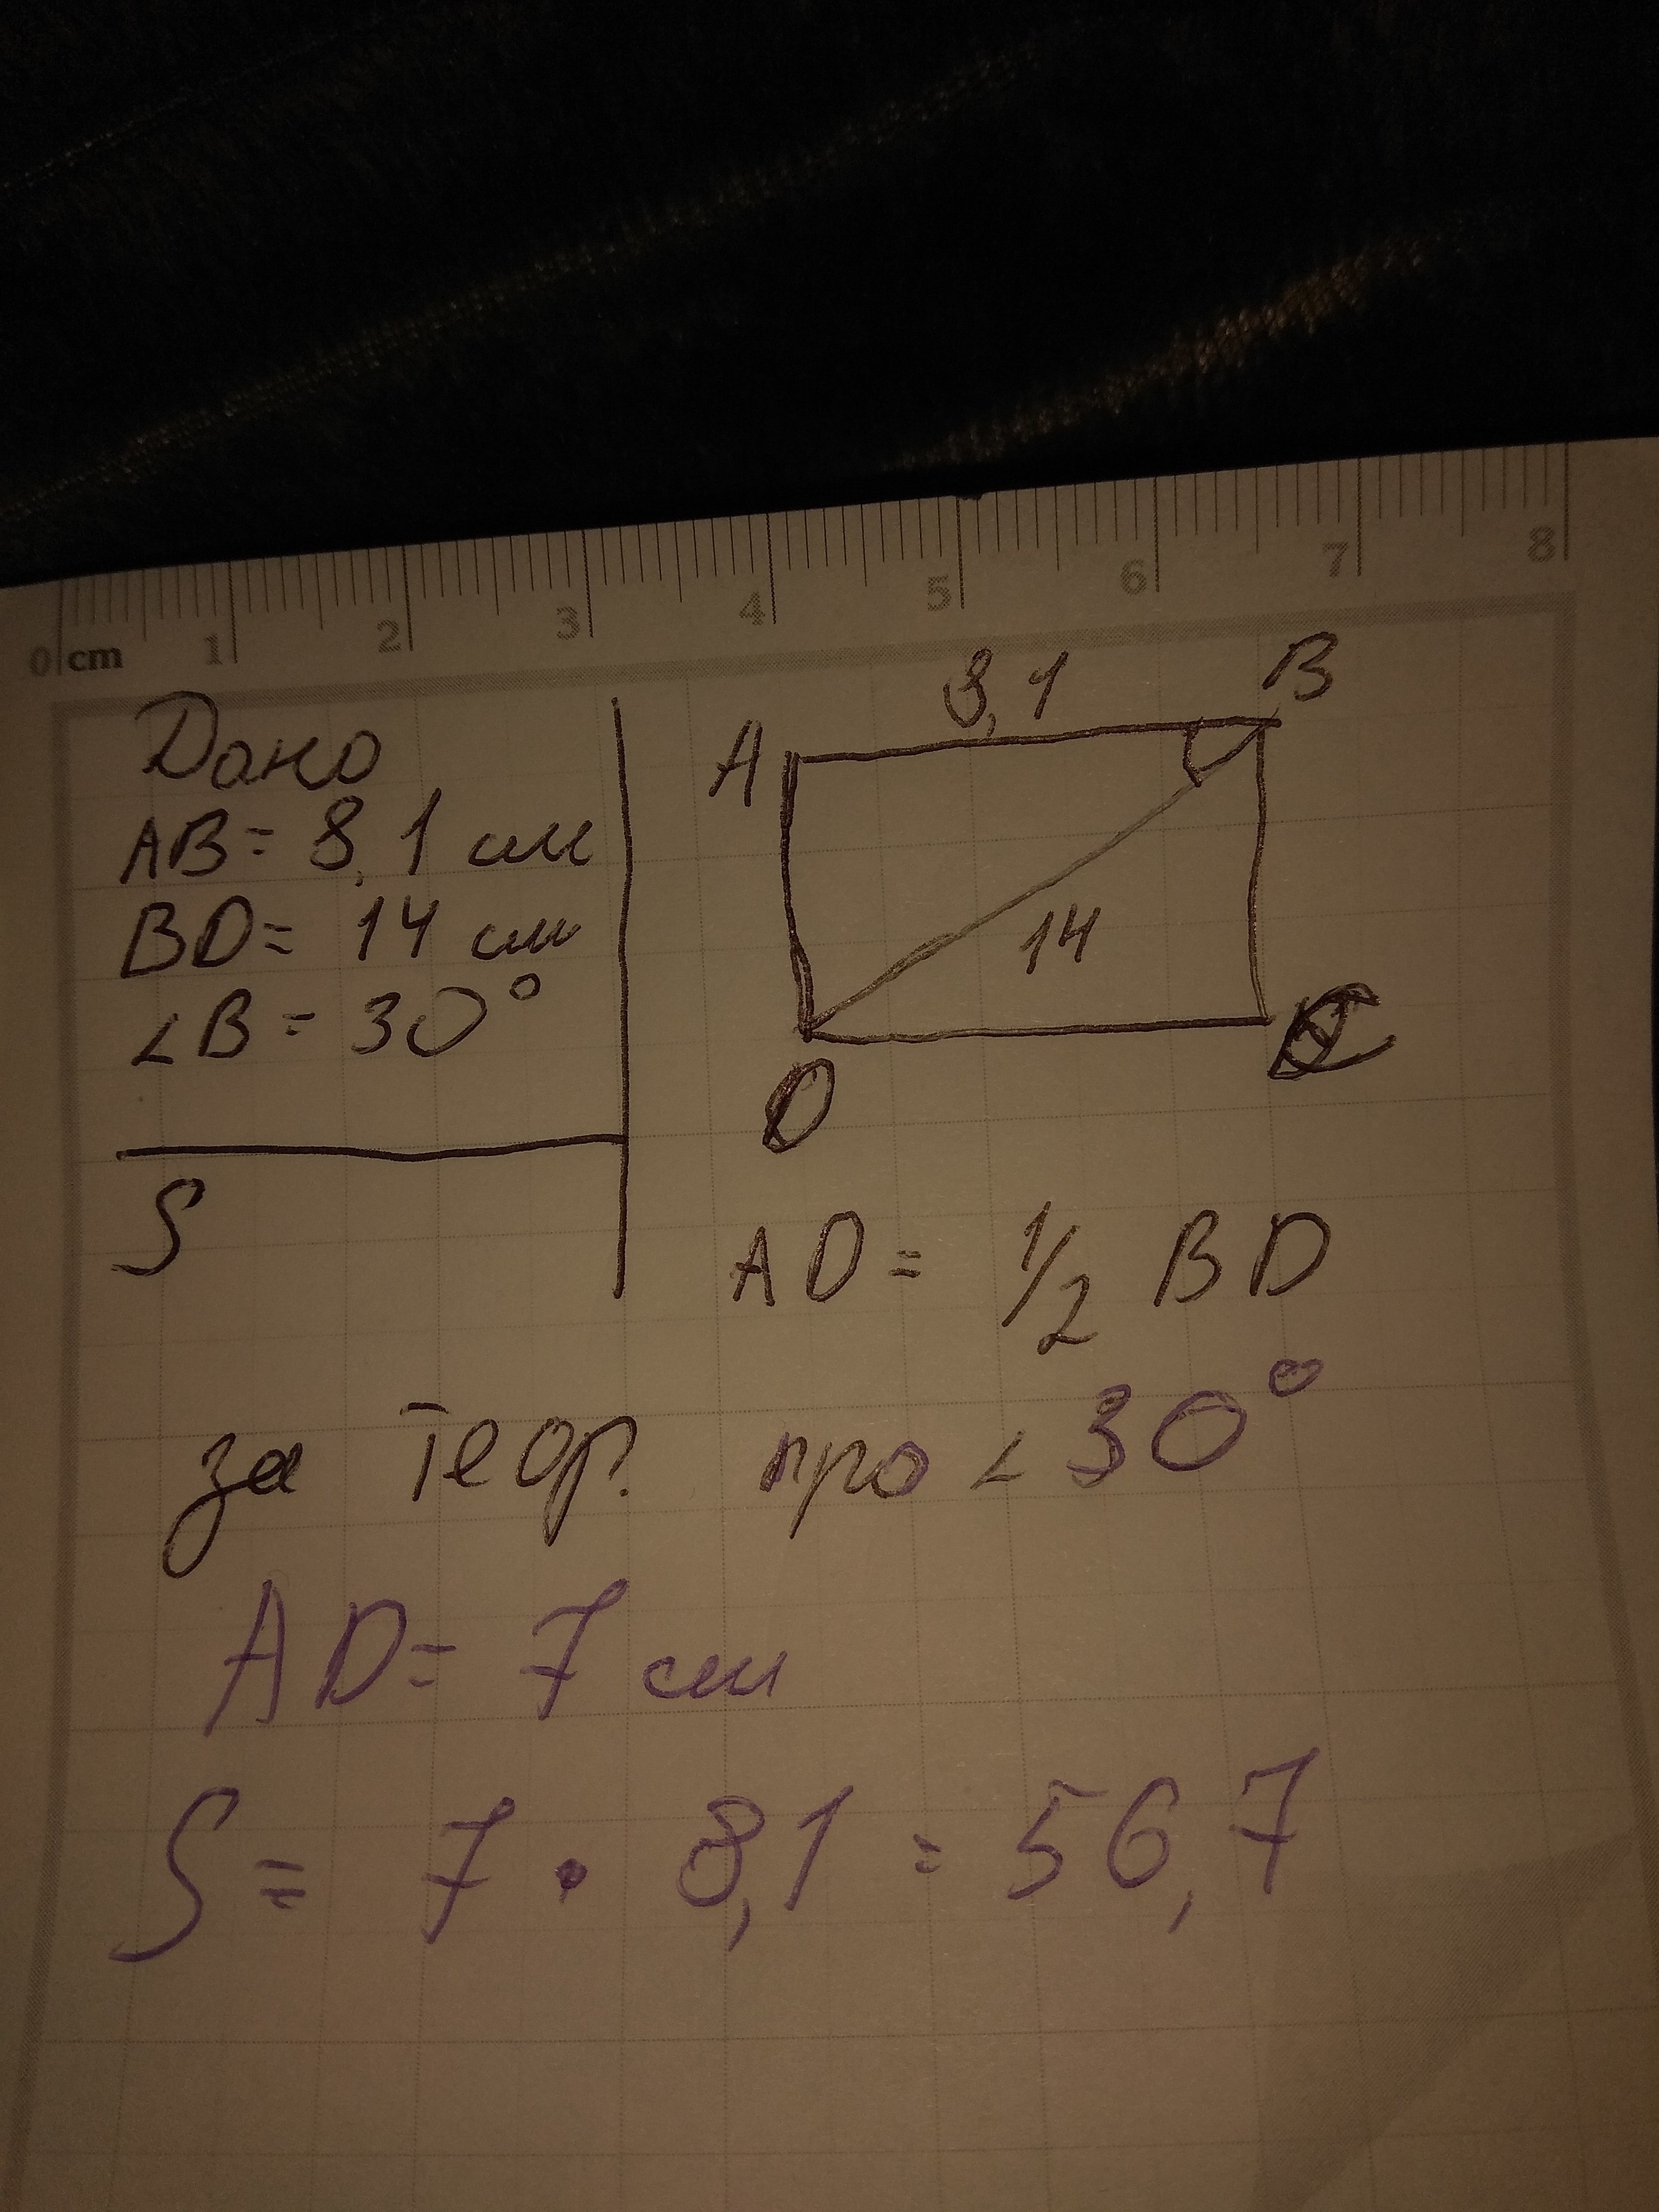 0 cm 1 2 3 4 5 6 7 8
Дано
AB = 8,1 см
BD = 14 см
∠B = 30°
S
8,1
A
B
14
D
C
AD = 1/2 BD
за теор. про ∠30°
AD = 7 см
S = 7 • 8,1 = 56,7